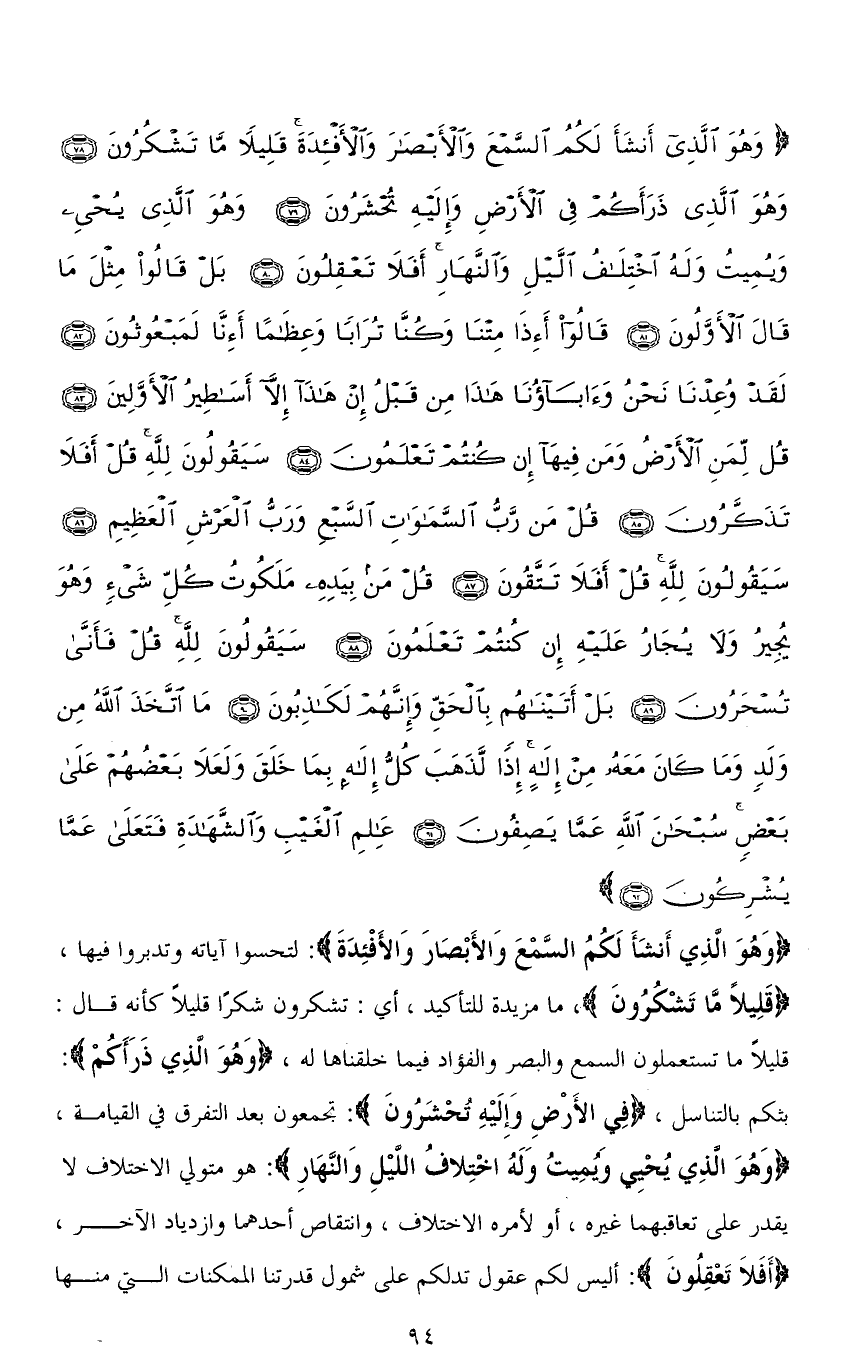 ﴿ وَهُوَ ٱلَّذِىٓ أَنشَأَ لَكُمُ ٱلسَّمْعَ وَٱلْأَبْصَٰرَ وَٱلْأَفْـِٔدَةَ ۚ قَلِيلًا مَّا تَشْكُرُونَ ٧٨
وَهُوَ ٱلَّذِى ذَرَأَكُمْ فِى ٱلْأَرْضِ وَإِلَيْهِ تُحْشَرُونَ ٧٩ وَهُوَ ٱلَّذِى يُحْىِۦ
وَيُمِيتُ وَلَهُ ٱخْتِلَٰفُ ٱلَّيْلِ وَٱلنَّهَارِ ۚ أَفَلَا تَعْقِلُونَ ٨٠ بَلْ قَالُوا۟ مِثْلَ مَا
قَالَ ٱلْأَوَّلُونَ ٨١ قَالُوٓا۟ أَءِذَا مِتْنَا وَكُنَّا تُرَابًا وَعِظَٰمًا أَءِنَّا لَمَبْعُوثُونَ ٨٢
لَقَدْ وُعِدْنَا نَحْنُ وَءَابَآؤُنَا هَٰذَا مِن قَبْلُ إِنْ هَٰذَآ إِلَّآ أَسَٰطِيرُ ٱلْأَوَّلِينَ ٨٣
قُل لِّمَنِ ٱلْأَرْضُ وَمَن فِيهَآ إِن كُنتُمْ تَعْلَمُونَ ٨٤ سَيَقُولُونَ لِلَّهِ ۚ قُلْ أَفَلَا
تَذَكَّرُونَ ٨٥ قُلْ مَن رَّبُّ ٱلسَّمَٰوَٰتِ ٱلسَّبْعِ وَرَبُّ ٱلْعَرْشِ ٱلْعَظِيمِ ٨٦
سَيَقُولُونَ لِلَّهِ ۚ قُلْ أَفَلَا تَتَّقُونَ ٨٧ قُلْ مَنۢ بِيَدِهِۦ مَلَكُوتُ كُلِّ شَىْءٍ وَهُوَ
يُجِيرُ وَلَا يُجَارُ عَلَيْهِ إِن كُنتُمْ تَعْلَمُونَ ٨٨ سَيَقُولُونَ لِلَّهِ ۚ قُلْ فَأَنَّىٰ
تُسْحَرُونَ ٨٩ بَلْ أَتَيْنَٰهُم بِٱلْحَقِّ وَإِنَّهُمْ لَكَٰذِبُونَ ٩٠ مَا ٱتَّخَذَ ٱللَّهُ مِن
وَلَدٍ وَمَا كَانَ مَعَهُۥ مِنْ إِلَٰهٍ ۚ إِذًا لَّذَهَبَ كُلُّ إِلَٰهٍۭ بِمَا خَلَقَ وَلَعَلَا بَعْضُهُمْ عَلَىٰ
بَعْضٍ ۚ سُبْحَٰنَ ٱللَّهِ عَمَّا يَصِفُونَ ٩١ عَٰلِمِ ٱلْغَيْبِ وَٱلشَّهَٰدَةِ فَتَعَٰلَىٰ عَمَّا
يُشْرِكُونَ ٩٢ ﴾
﴿وَهُوَ الَّذِي أَنشَأَ لَكُمُ السَّمْعَ وَالأَبْصَارَ وَالأَفْئِدَةَ﴾: لتحسوا آياته وتدبروا فيها ،
﴿قَلِيلاً مَّا تَشْكُرُونَ ﴾، ما مزيدة للتأكيد ، أي : تشكرون شكرًا قليلاً كأنه قال :
قليلاً ما تستعملون السمع والبصر والفؤاد فيما خلقناها له ، ﴿وَهُوَ الَّذِي ذَرَأَكُمْ﴾:
بثكم بالتناسل ، ﴿فِي الأَرْضِ وَإِلَيْهِ تُحْشَرُونَ ﴾: تجمعون بعد التفرق في القيامة ،
﴿وَهُوَ الَّذِي يُحْيِي وَيُمِيتُ وَلَهُ اخْتِلافُ اللَّيْلِ وَالنَّهَارِ ﴾: هو متولي الاختلاف لا
يقدر على تعاقبهما غيره ، أو لأمره الاختلاف ، وانتقاص أحدهما وازدياد الآخر ،
﴿أَفَلاَ تَعْقِلُونَ ﴾: أليس لكم عقول تدلكم على شمول قدرتنا الممكنات التي منها
٩٤